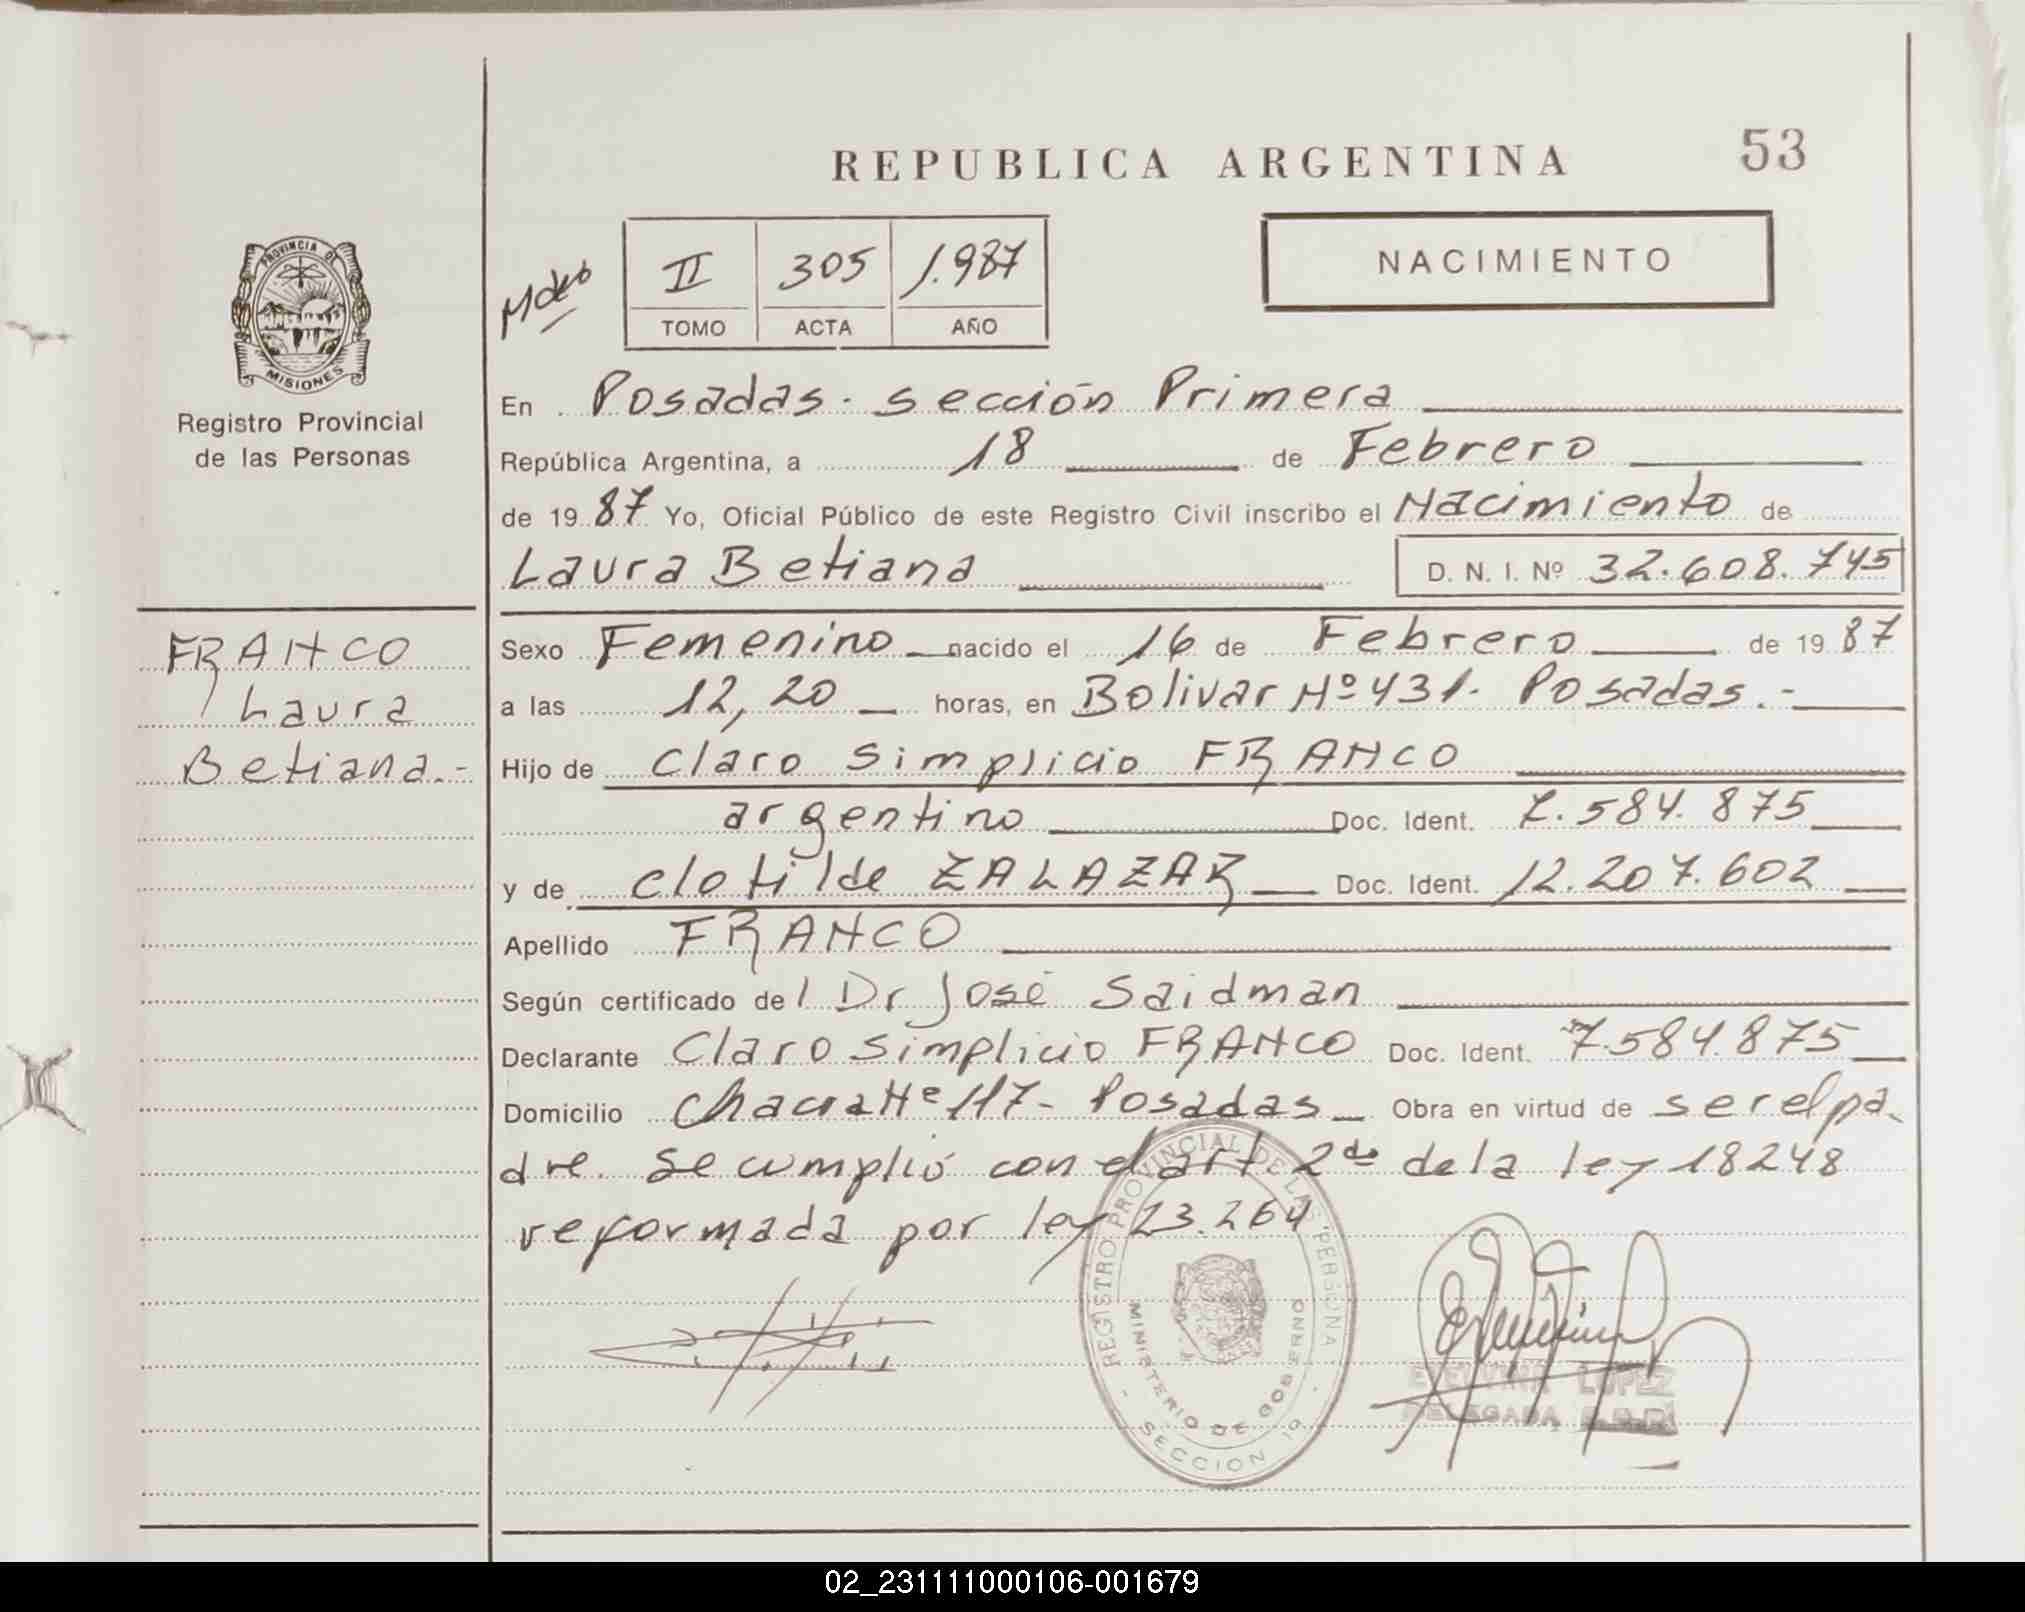 REPUBLICA ARGENTINA 53
PROVINCIA DE
MISIONES
Registro Provincial
de las Personas
II 305 1.987
TOMO ACTA AÑO
NACIMIENTO
En Posadas. sección Primera
República Argentina, a 18 de Febrero
de 1987 Yo, Oficial Público de este Registro Civil inscribo el Nacimiento de
Laura Betiana D. N. I. Nº 32.608.745
FRANCO
Laura
Betiana.-
Sexo Femenino nacido el 16 de Febrero de 1987
a las 12,20 horas, en Bolivar Nº 431. Posadas.-
Hijo de Claro Simplicio FRANCO
argentino Doc. Ident. 7.584.875
y de Clotilde ZALAZAR Doc. Ident. 12.207.602
Apellido FRANCO
Según certificado del Dr José Saidman
Declarante Claro Simplicio FRANCO Doc. Ident. 7.584.875
Domicilio Chacra Nº 117- Posadas Obra en virtud de ser el pa-
dre. Se cumplió con el art 2do de la ley 18248
reformada por ley 23.264
REGISTRO PROVINCIAL DE LAS PERSONA
MINISTERIO DE GOBIERNO
SECCION 1º
LOPEZ
DELEGADA
02_231111000106-001679